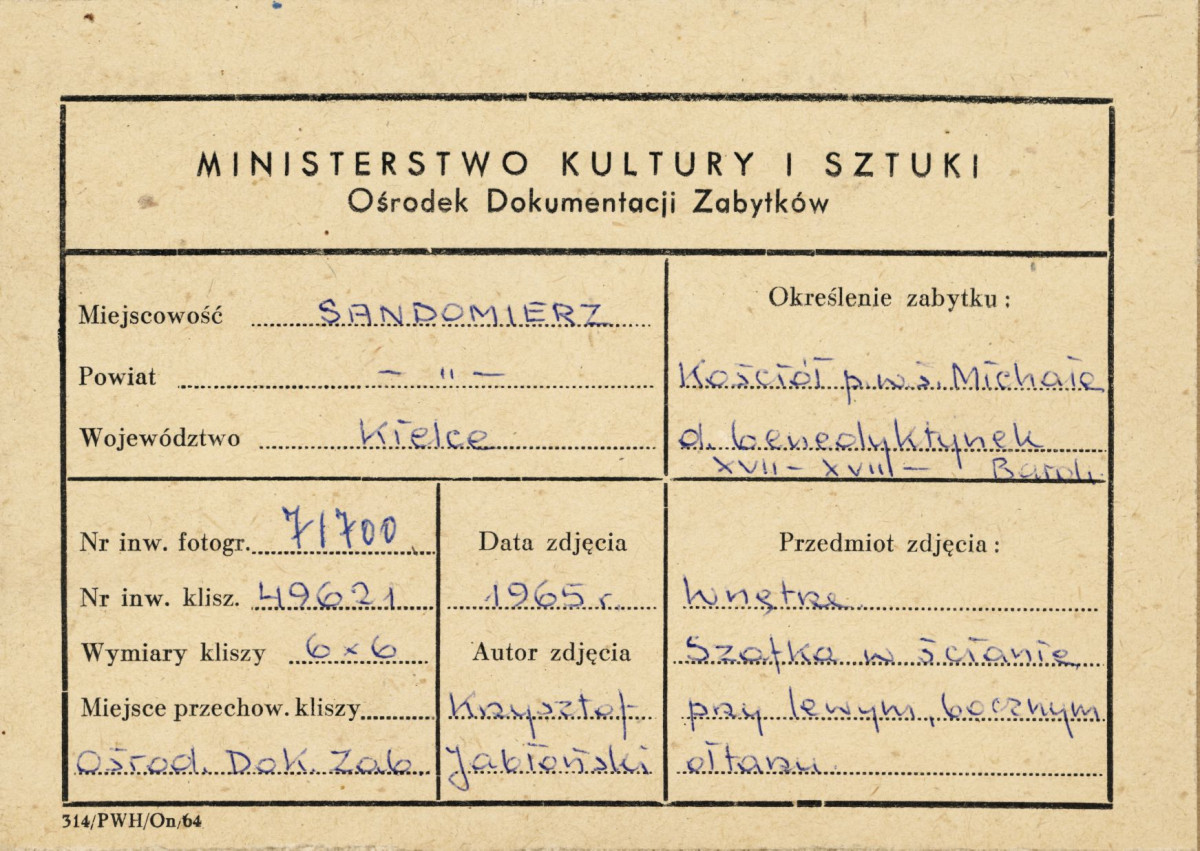 MINISTERSTWO KULTURY I SZTUKI
Ośrodek Dokumentacji Zabytków
Miejscowość SANDOMIERZ
Powiat — " —
Województwo Kielce
Określenie zabytku:
Kościół p.w.ś. Michała
d. benedyktynek
XVII – XVIII – Bardı.
Nr inw. fotogr. 71700
Nr inw. klisz. 49621
Wymiary kliszy 6×6
Miejsce przechow. kliszy
Ośrod. Dok. Zab
Data zdjęcia
1965 r.
Autor zdjęcia
Krzysztof
Jabłoński
Przedmiot zdjęcia:
Wnętrze
Szafka w ścianie
przy lewym, bocznym
ołtarzu
314/PWH/On/64